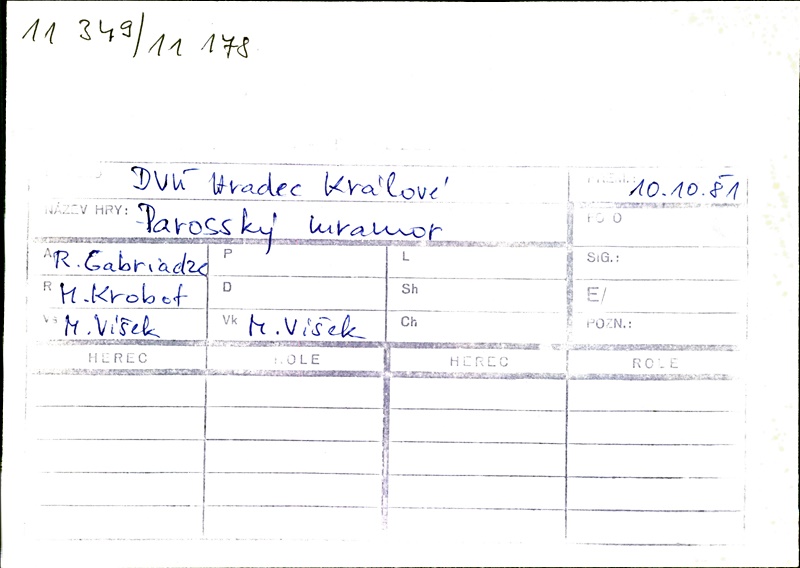 11 349/11 178
DVÚ Hradec Králové
10.10.81
NÁZEV HRY: Parosský mramor
A R. Gabriadze P L SIG.:
R M. Krobot D Sh E/
Vs M. Víšek Vk M. Víšek Ch POZN.:
HEREC ROLE HEREC ROLE